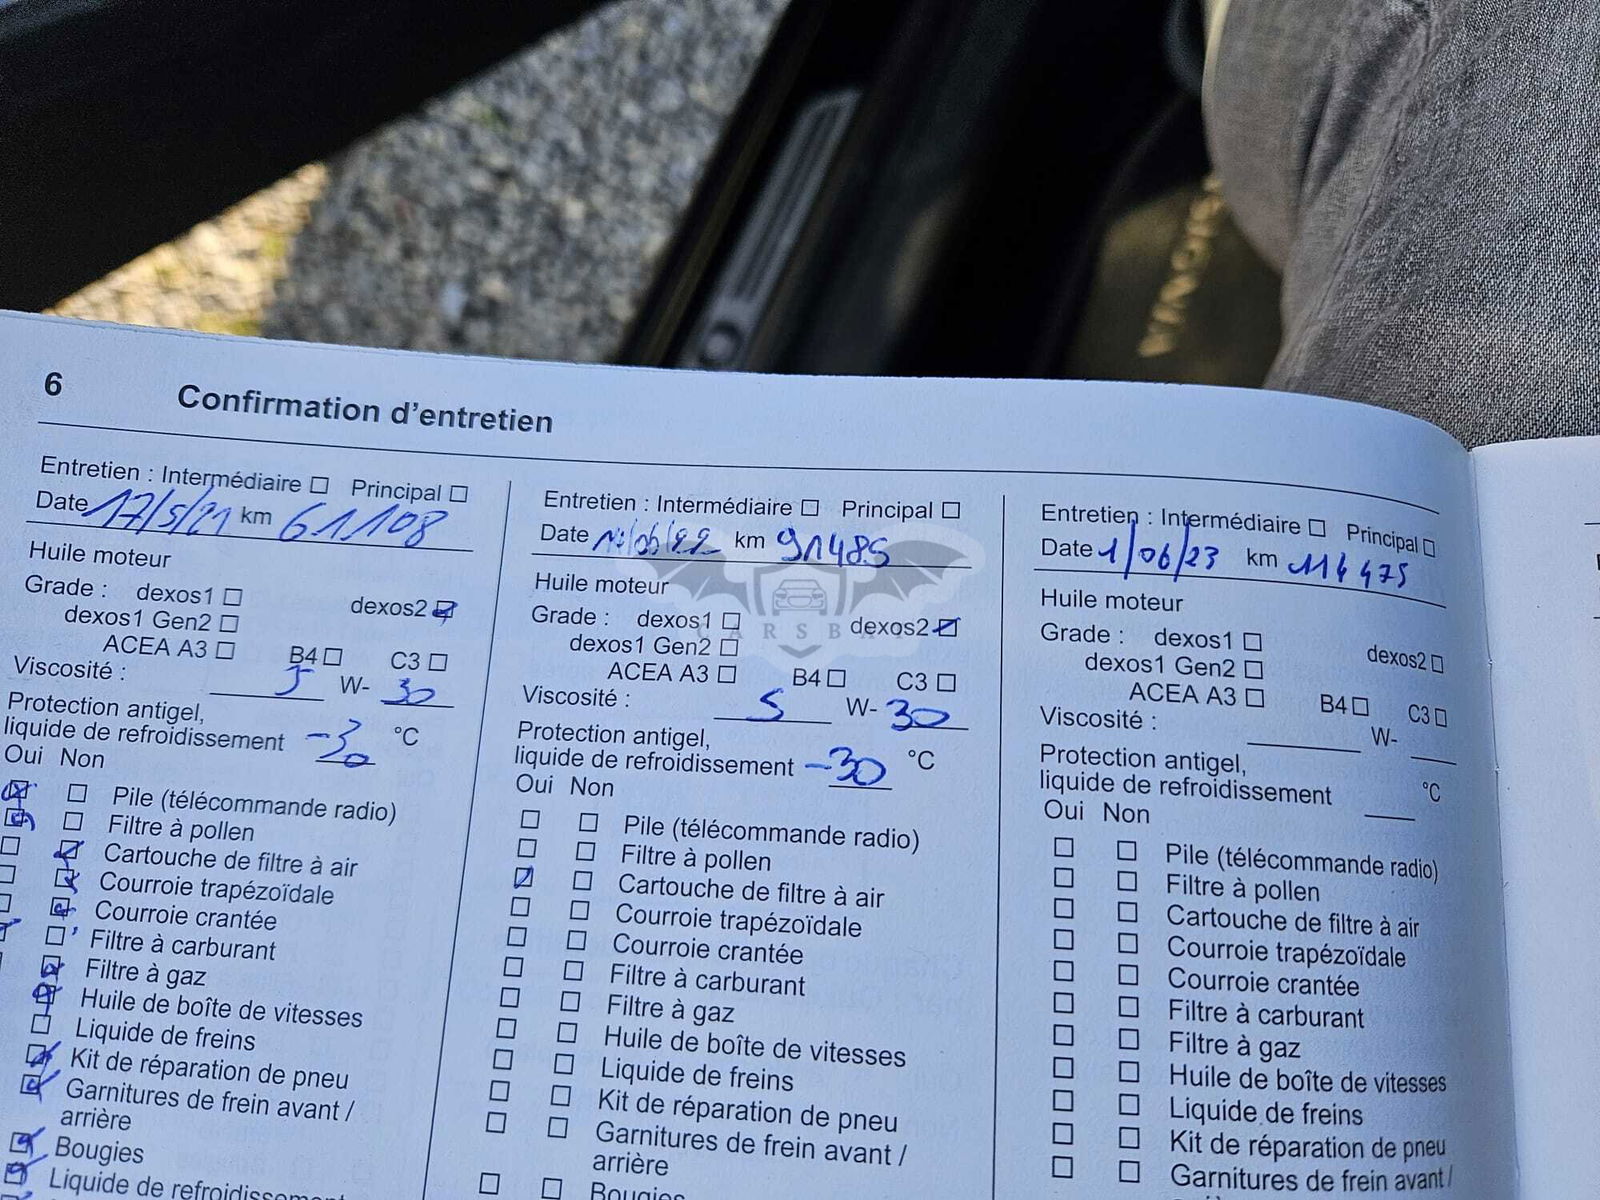 6 Confirmation d'entretien
Entretien : Intermédiaire ☐ Principal ☐
Date 17/5/21 km 61108
Huile moteur
Grade : dexos1 ☐ dexos2 ☑
dexos1 Gen2 ☐
ACEA A3 ☐ B4 ☐ C3 ☐
Viscosité : 5 W- 30
Protection antigel,
liquide de refroidissement -30 °C
Oui Non
Pile (télécommande radio)
Filtre à pollen
Cartouche de filtre à air
Courroie trapézoïdale
Courroie crantée
Filtre à carburant
Filtre à gaz
Huile de boîte de vitesses
Liquide de freins
Kit de réparation de pneu
Garnitures de frein avant /
arrière
Bougies
Liquide de refroidissement
Entretien : Intermédiaire ☐ Principal ☐
Date km 91485
Huile moteur
Grade : dexos1 ☐ dexos2 ☑
dexos1 Gen2 ☐
ACEA A3 ☐ B4 ☐ C3 ☐
Viscosité : 5 W- 30
Protection antigel,
liquide de refroidissement -30 °C
Oui Non
Pile (télécommande radio)
Filtre à pollen
Cartouche de filtre à air
Courroie trapézoïdale
Courroie crantée
Filtre à carburant
Filtre à gaz
Huile de boîte de vitesses
Liquide de freins
Kit de réparation de pneu
Garnitures de frein avant /
arrière
Bougies
Entretien : Intermédiaire ☐ Principal ☐
Date 1/06/23 km 114475
Huile moteur
Grade : dexos1 ☐ dexos2 ☐
dexos1 Gen2 ☐
ACEA A3 ☐ B4 ☐ C3 ☐
Viscosité : W-
Protection antigel,
liquide de refroidissement °C
Oui Non
Pile (télécommande radio)
Filtre à pollen
Cartouche de filtre à air
Courroie trapézoïdale
Courroie crantée
Filtre à carburant
Filtre à gaz
Huile de boîte de vitesses
Liquide de freins
Kit de réparation de pneu
Garnitures de frein avant /